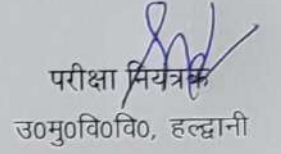 परीक्षा नियंत्रक
उ०मु०वि०वि०, हल्द्वानी